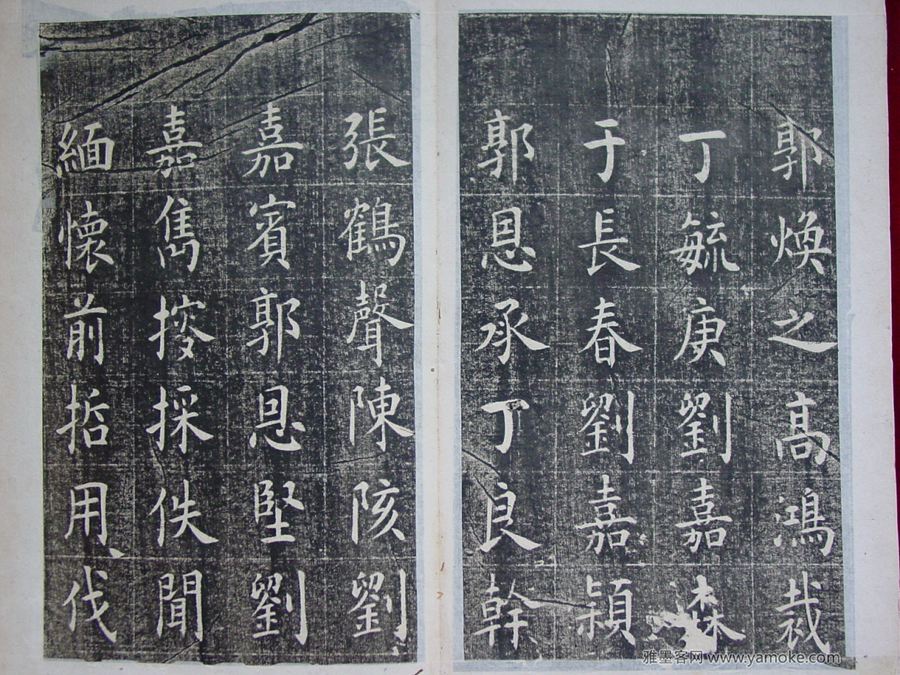 郭煥之高鴻裁
丁毓庚劉嘉森
于長春劉嘉穎
郭恩承丁良幹
張鶴聲陳陔劉
嘉賓郭恩堅劉
嘉雋挍採佚聞
緬懷前哲用伐
雅墨客网 www.yamoke.com